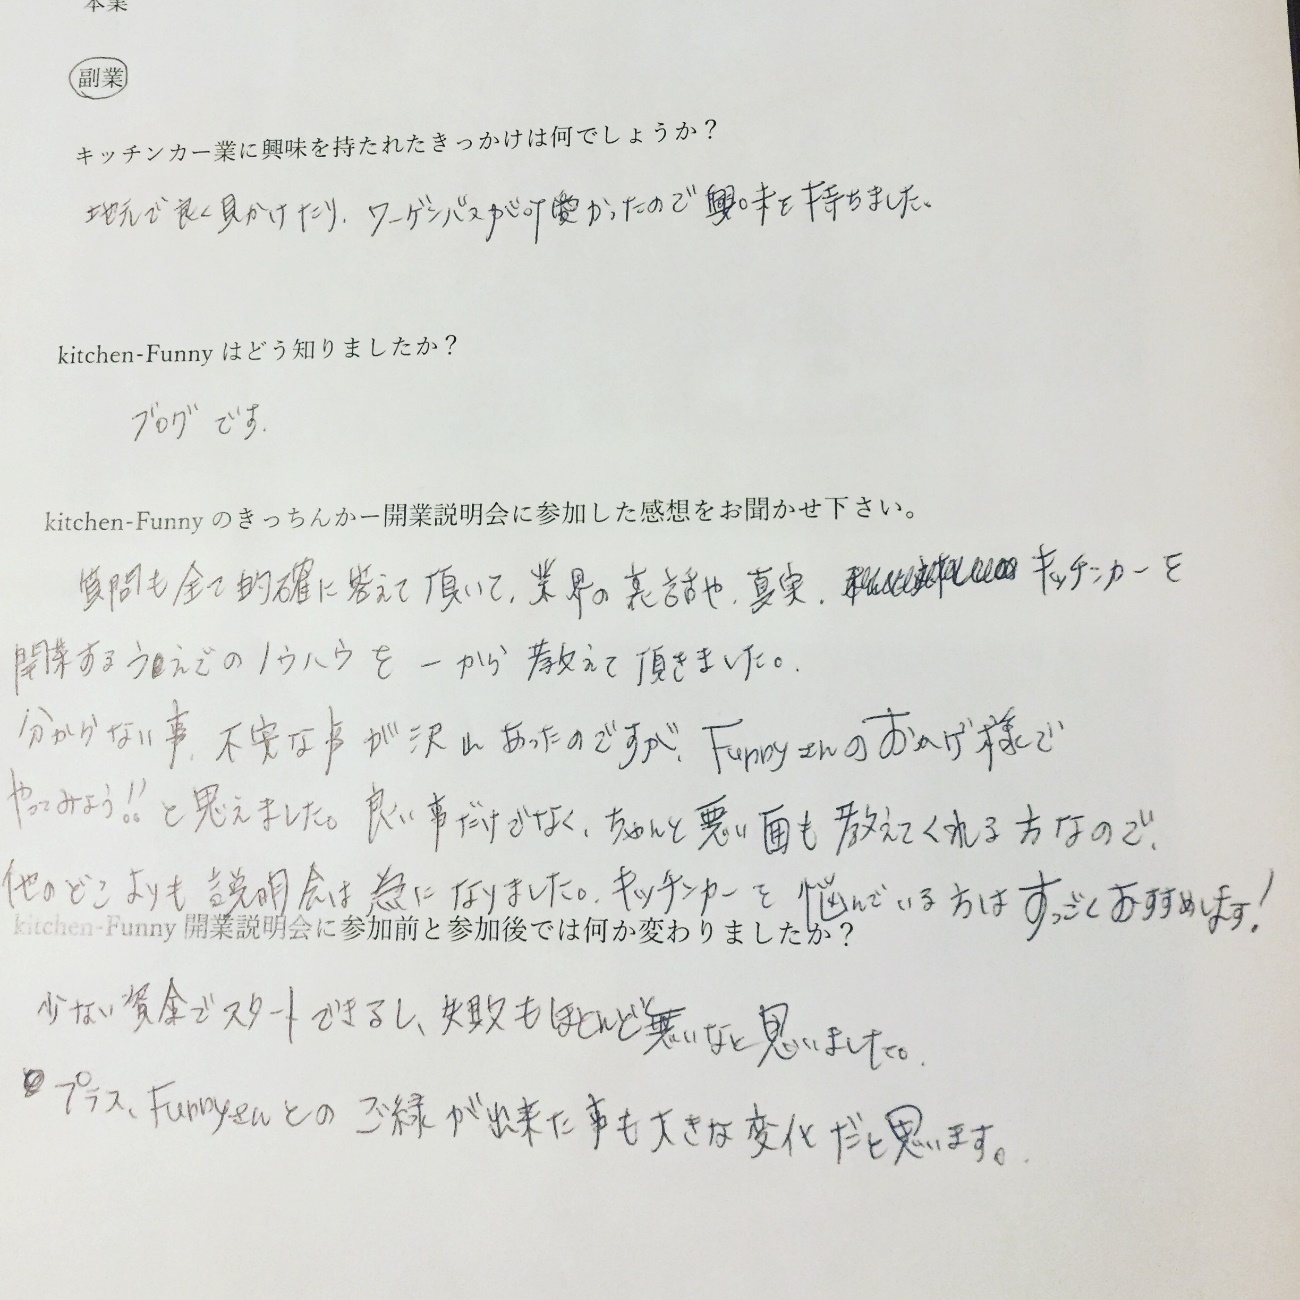 本業
副業
キッチンカー業に興味を持たれたきっかけは何でしょうか？
地元で良く見かけたり、ワーゲンバスが可愛かったので興味を持ちました。
kitchen-Funny はどう知りましたか？
ブログです.
kitchen-Funny のきっちんかー開業説明会に参加した感想をお聞かせ下さい。
質問も全て的確に答えて頂いて、業界の裏話や、真実、キッチンカーを
開業するうえでのノウハウを一から教えて頂きました。
分からない事、不安な事が沢山あったのですが、Funnyさんのおかげ様で
やってみよう!!と思えました。良い事だけでなく、ちゃんと悪い面も教えてくれる方なので、
他のどこよりも説明会は為になりました。キッチンカーを悩んでいる方はすっごくおすすめします!
kitchen-Funny 開業説明会に参加前と参加後では何か変わりましたか？
少ない資金でスタートできるし、失敗もほとんど無いなと思いました。
プラス、Funnyさんとのご縁が出来た事も大きな変化だと思います。